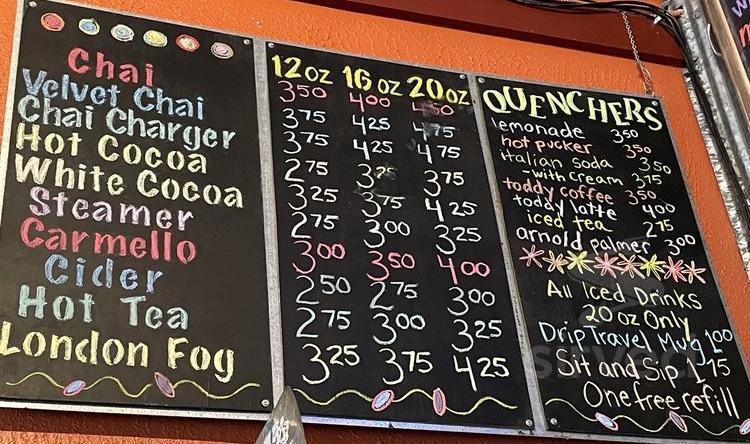 Chai
Velvet Chai
Chai Charger
Hot Cocoa
White Cocoa
Steamer
Carmello
Cider
Hot Tea
London Fog
12 oz 16 oz 20 oz
350 400 450
375 425 475
375 425 475
275 325 375
325 375 425
275 300 325
300 350 400
250 275 300
275 300 325
325 375 425
QUENCHERS
lemonade 350
hot pucker 350
italian soda 350
-with cream 375
toddy coffee 350
toddy latte 400
iced tea 275
arnold palmer 300
All Iced Drinks
20 oz Only
Drip Travel Mug 100
Sit and Sip 175
One free refill